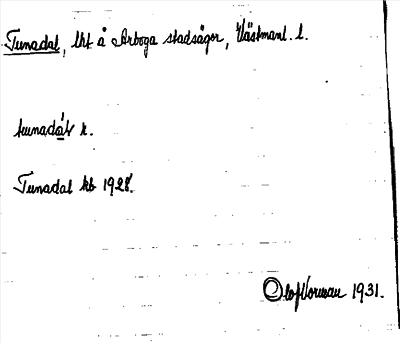 Tunadal, lht å Arboga stadsägor, Västmanl. l.
tunadá̱l k.
Tunadal kb 1928.
Olof Norman 1931.